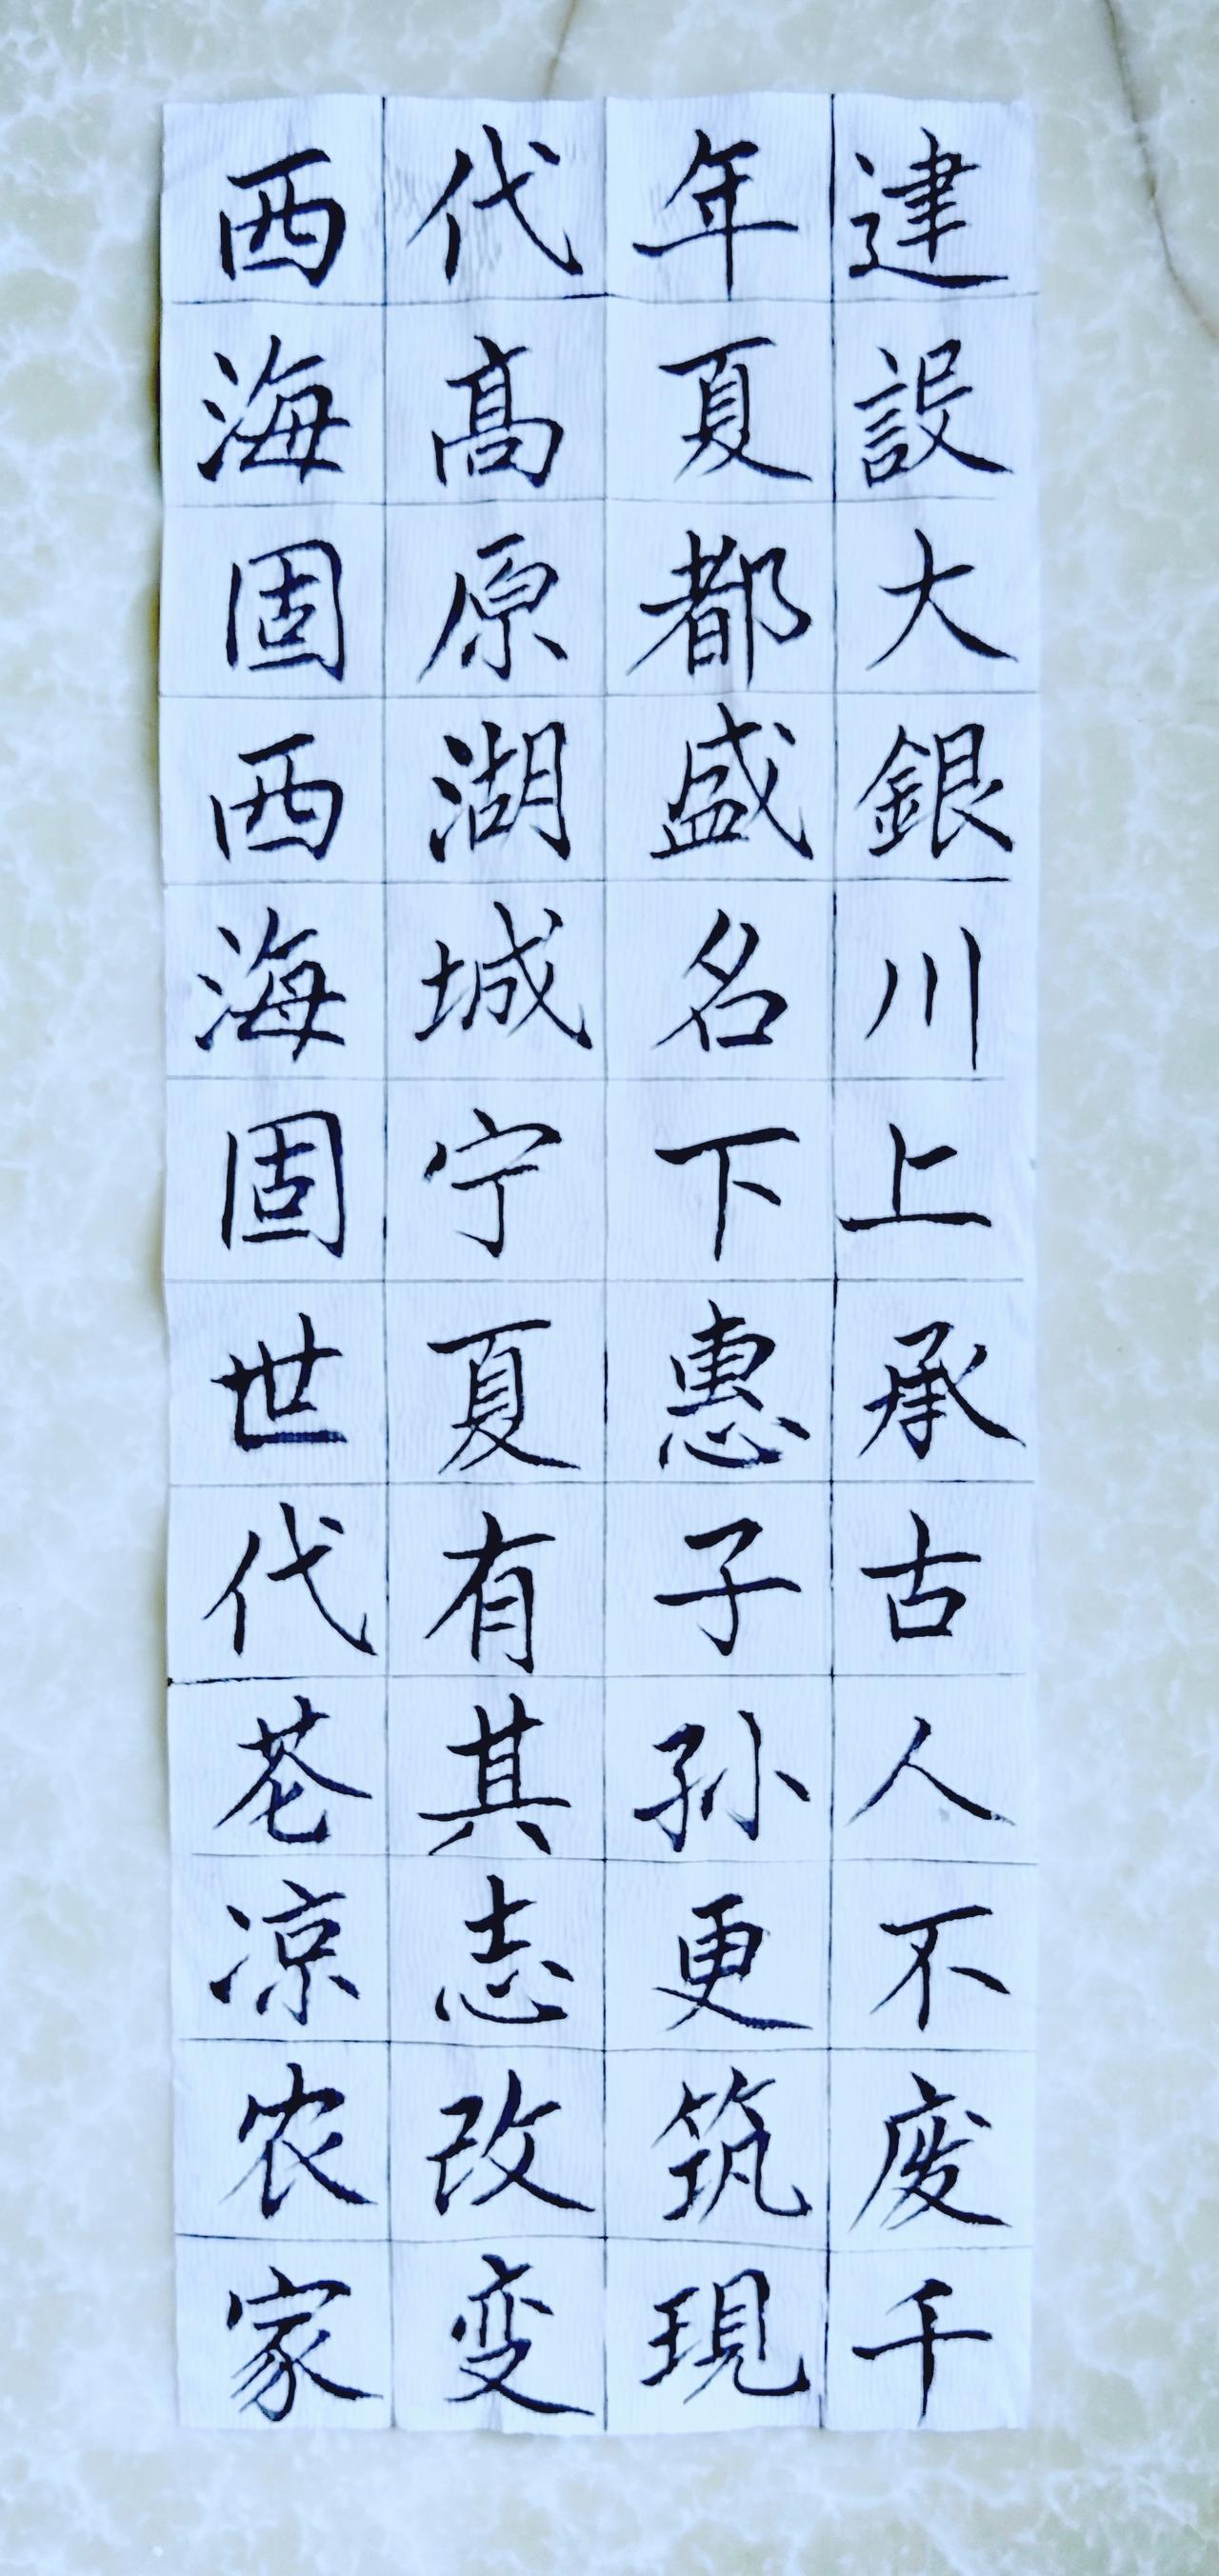 建設大銀川上承古人不废千
年夏都盛名下惠子孙更筑現
代高原湖城宁夏有其志改变
西海固西海固世代苍凉农家